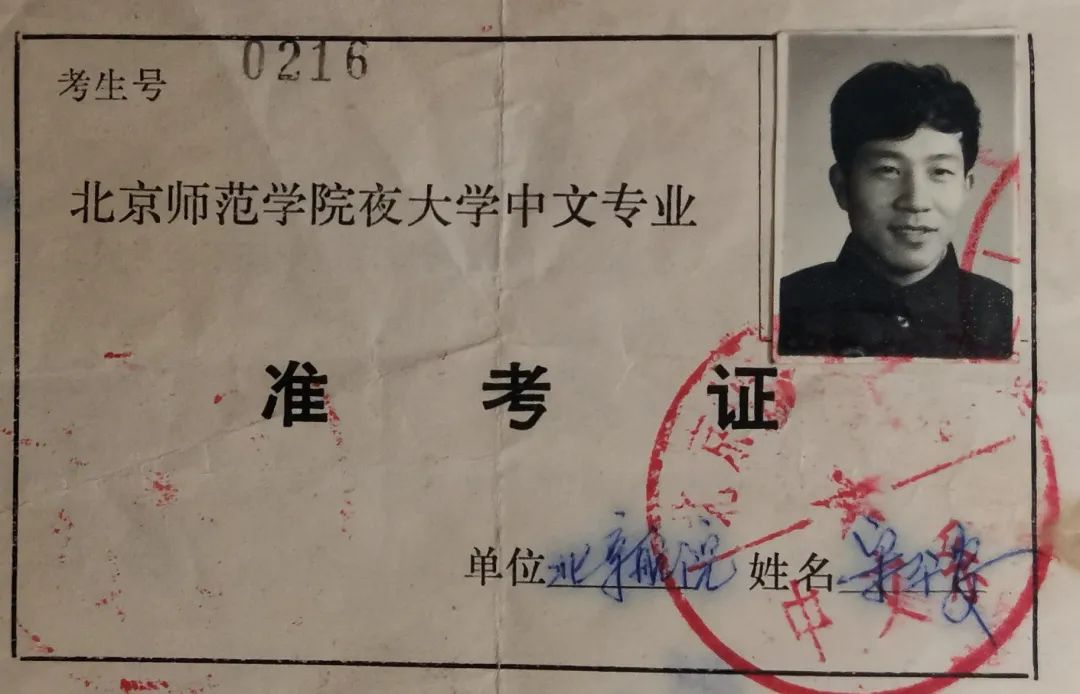 考生号 0216
北京师范学院夜大学中文专业
准考证
单位 北京航院 姓名
京
中文